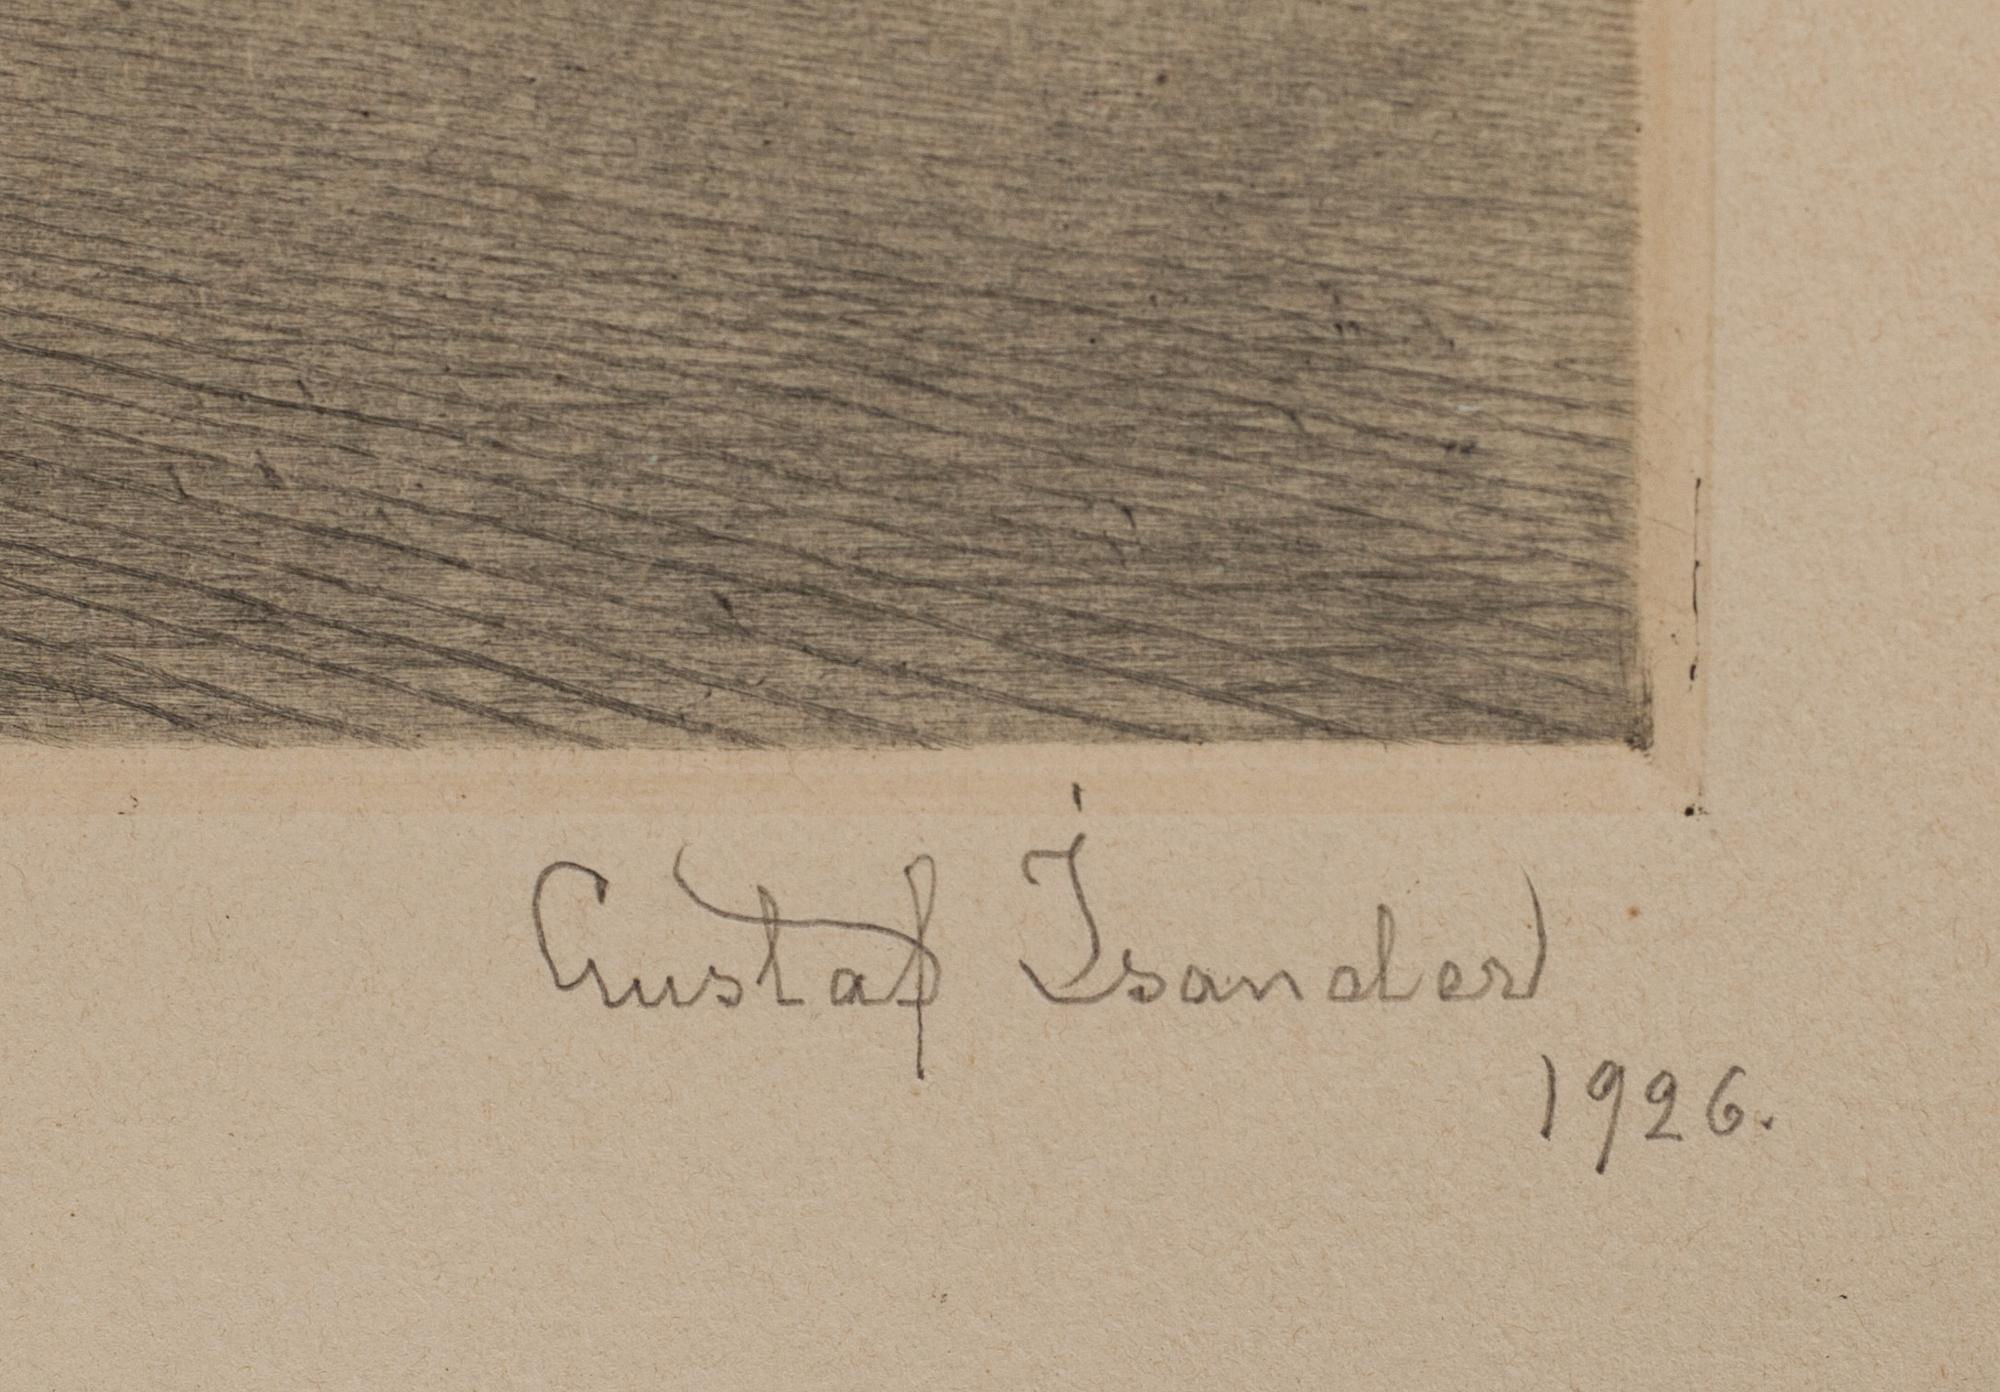 Gustaf Isander
1926.